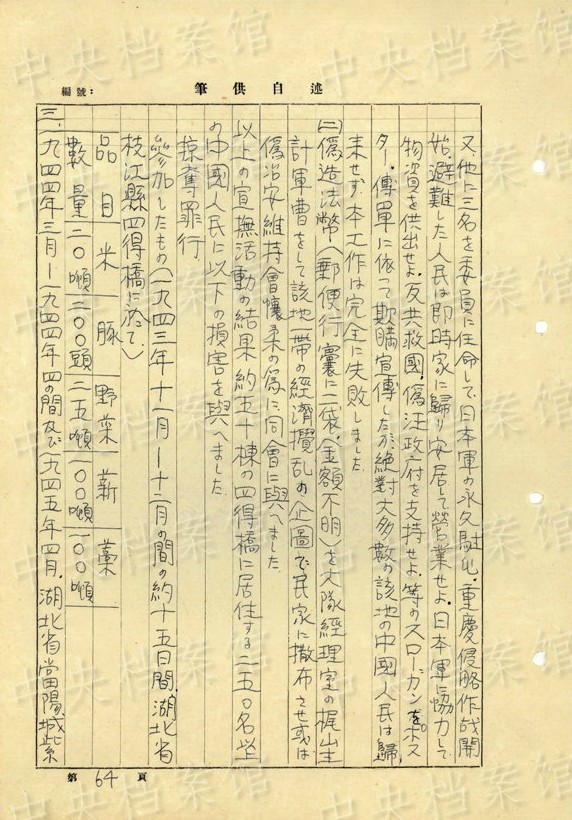 編號：
筆供自述
又他に三名を委員に任命して、日本軍の永久駐屯、重慶侵略作战開
始、避難した人民は即時家に歸り安居して營業せよ、日本軍に協力して
物資を供出せよ、反共救國、偽汪政府を支持せよ、等のスローガンを、ポス
ター、傳單に依って欺瞞宣傳したが絶對大多數の該地の中國人民は歸
来せず、本工作は完全に失敗しました
(二)偽造法幣(郵便行嚢に一袋、金額不明)を大隊經理室の梶山主
計軍曹をして該地一帶の經濟攪乱の企圖で民家に撒布させ或は
偽治安維持會懐柔の為に同會に與へました
以上の宣撫活動の結果約五十棟の四得橋に居住する二五〇名
の中國人民に以下の損害を與へました
掠奪罪行
參加したもの(一九四三年十一月—十二月の間の約十五日間、湖北省
枝江縣四得橋に於て)
品目 米 豚 野菜 薪 藁
數量 二〇噸 二〇〇頭 二五噸 一〇〇噸 一〇〇噸
三、一九四四年三月—一九四四年四の間及び一九四五年四月、湖北省當陽城紫
第 64 頁
中央档案馆